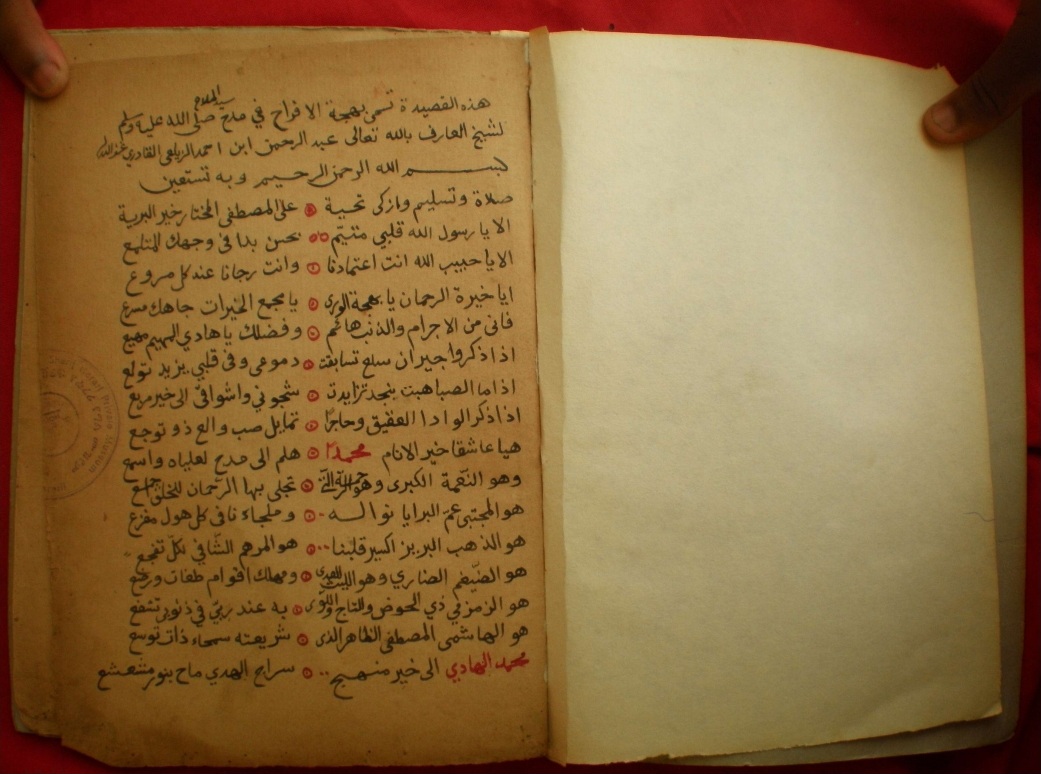 هذه القصيدة تسمى بهجة الافراح في مدح سيد الملاح صلى الله عليه وسلم
لشيخ العارف بالله تعالى عبد الرحمن ابن احمد الزيلعي القادري
بسم الله الرحمن الرحيم وبه نستعين
صلاة وتسليم وازكى تحية على المصطفى المختار خير البرية
الا يا رسول الله قلبي متيّم بحسن بدا في وجهك المتلمع
الا يا حبيب الله انت اعتمادنا وانت رجانا عند كل مروع
ايا خيرة الرحمان يا بهجة الورى يا مجمع الخيرات جاهك مسرع
فانى من الاجرام والذنب هائم وفضلك يا هادي المهيم مهيع
اذا ذكروا جيران سلع تسابقة دموعى وفى قلبي يزيد تولع
اذا ما الصبا هبت بنجد تزايدت شجوني واشواقى الى خير مربع
اذا ذكر الوادا العقيق وحاجرًا تمايل صب والع ذو توجع
هيا عاشقا خير الانام محمدا هلم الى مدح لعلياه واسمع
وهو النّعمة الكبرى وهو تجلى بها الرّحمان للخلق
هو المجتبى عمّ البرايا نواله وملجاء نا فى كل هول مفزع
هو الذهب البريز اكسير قلبنا هو المرهم الشّافي لكلّ تفجع
هو الضّيغم الضاري وهو الليث ومهلك اقوام طغات
هو الزمزمي ذي الحوض والتاج واللوى به عند ربّي في ذنوبى تشفع
هو الهاشمى المصطفى الظاهر الذى شريعته سمحاء ذات توسع
محمد الهادي الى خير منهج سراج الهدي ماح بنور مشعشع